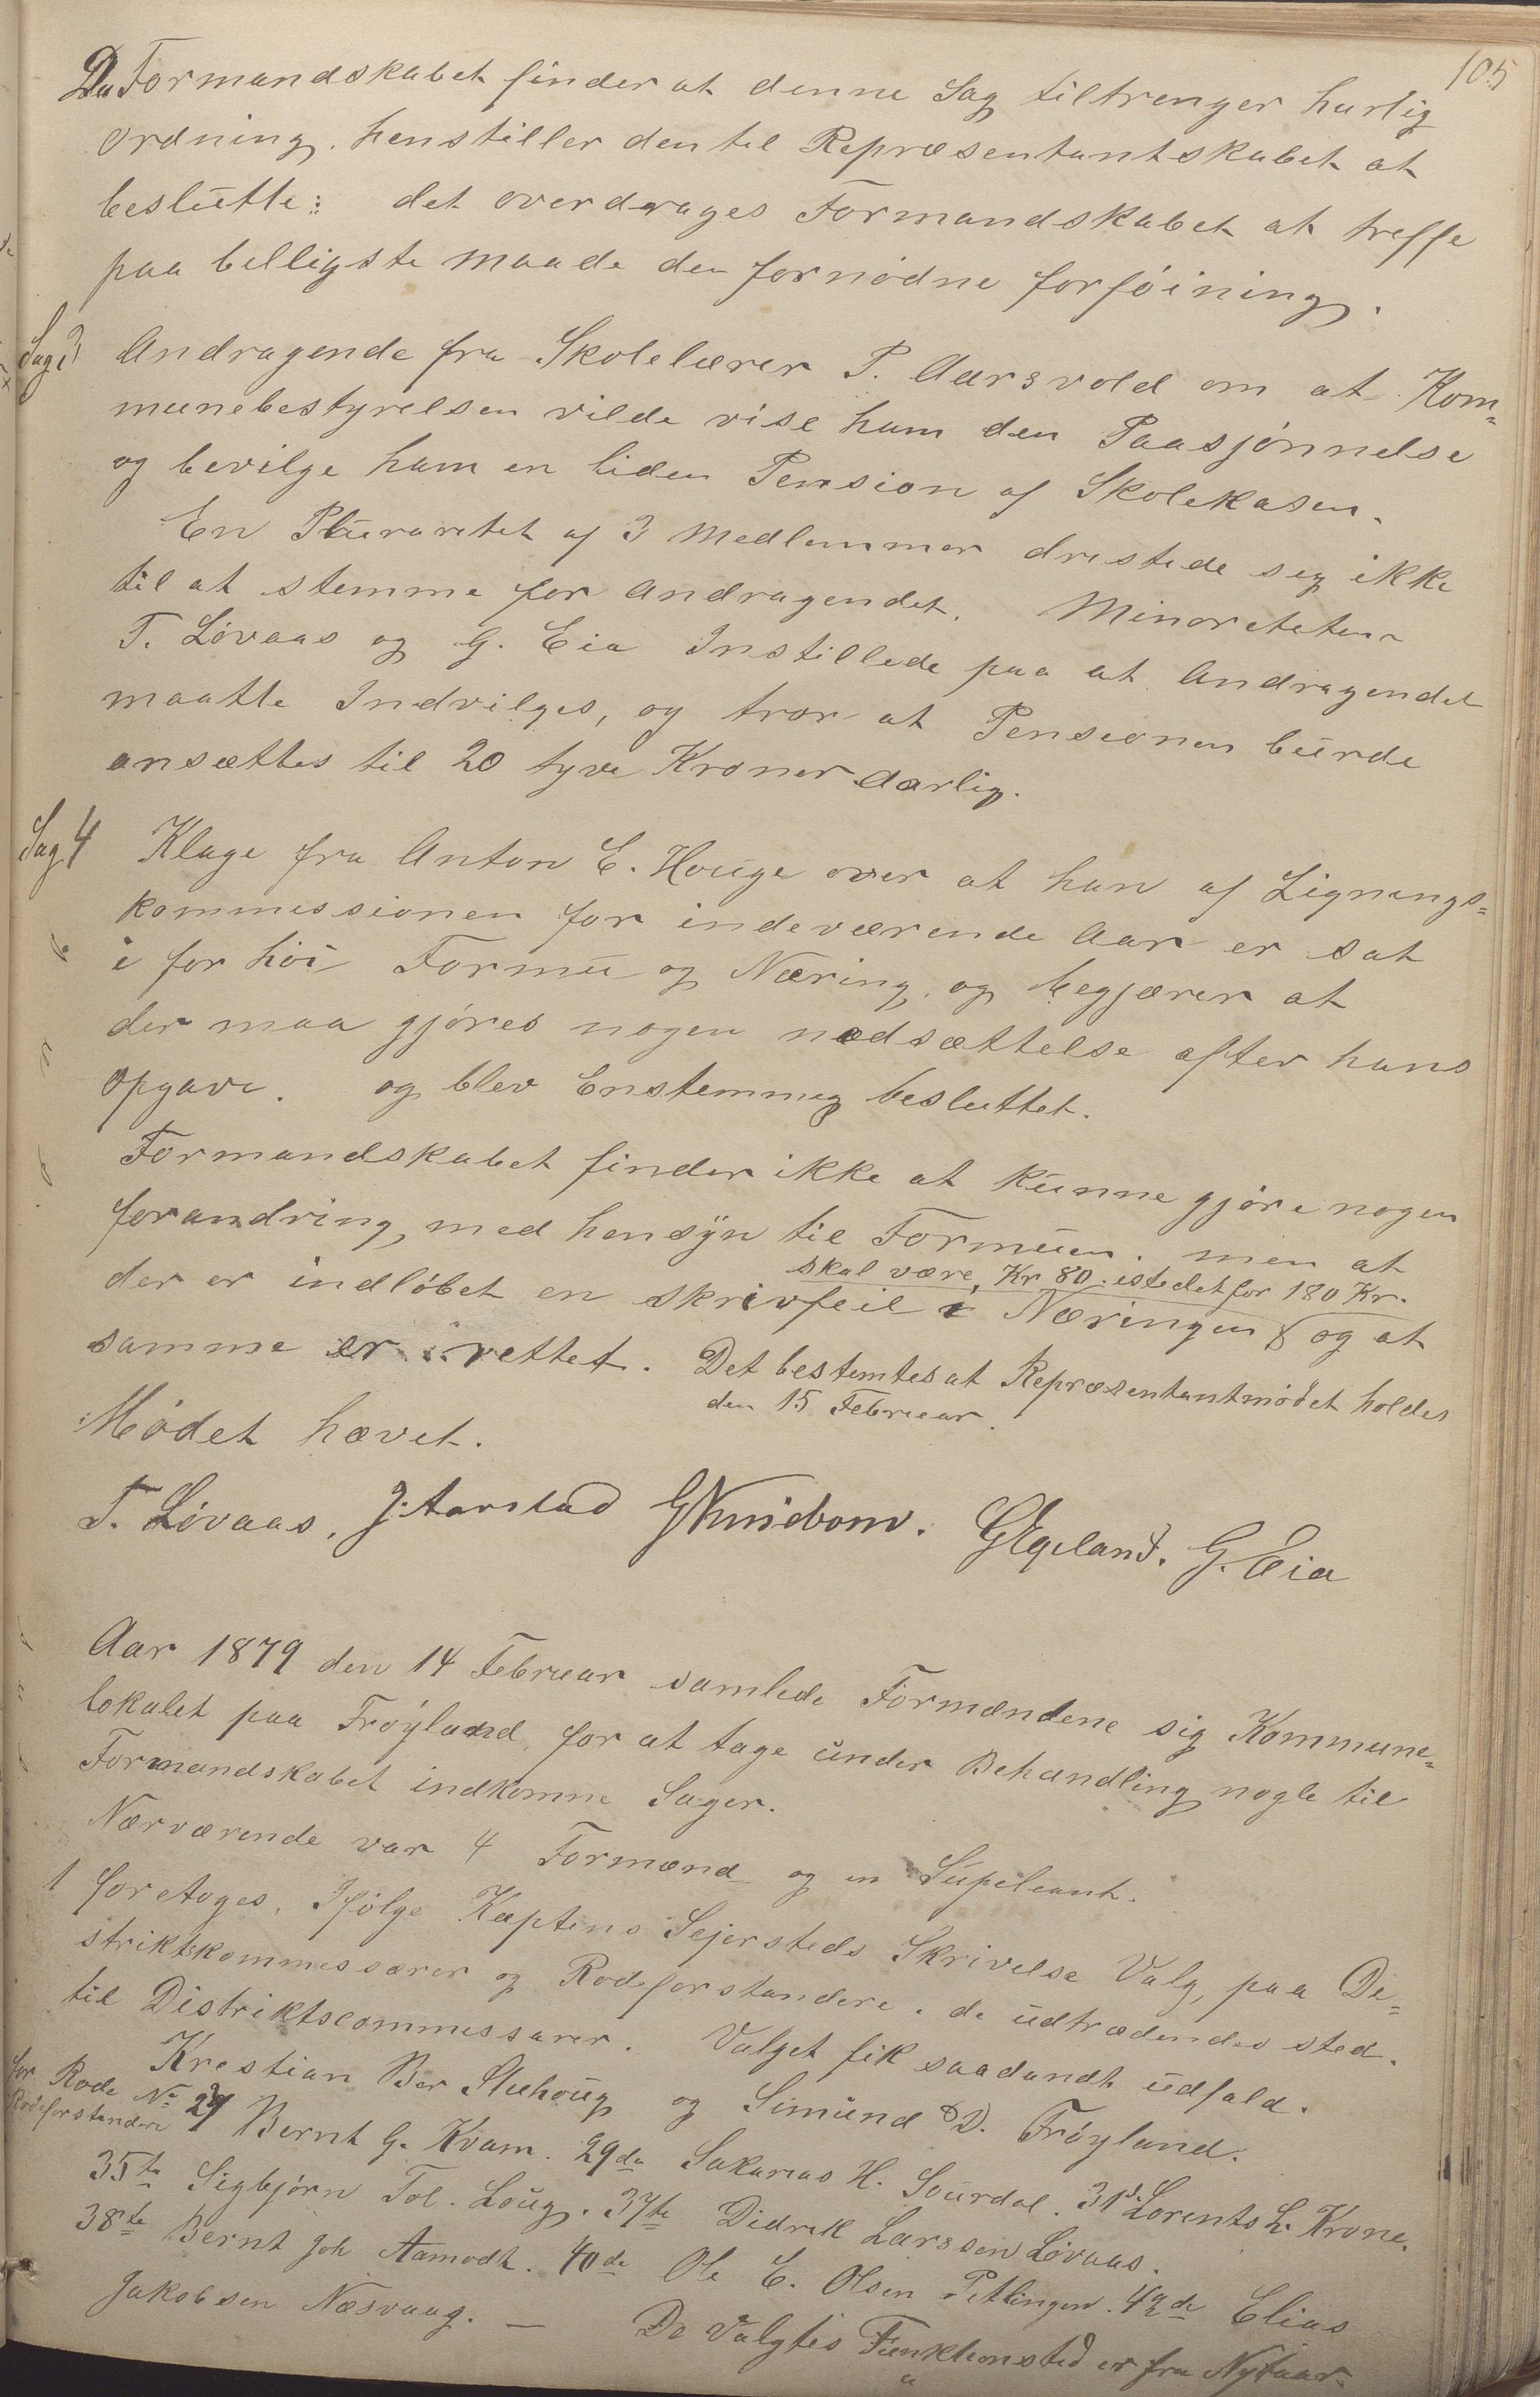 105
Da Formandskabet finder at denne Sag tiltrenger hurtig
Ordning. henstiller den til Repræsentantskabet at
beslutte: det overdrages Formandskabet at treffe
paa belligste maade den fornødne forføining.
Sag 3 Andragende fra Skolelærer P. Aarsvold om at Kom=
munebestyrelsen vilde vise ham den Paasjønnelse
og bevilge ham en liden Pension af Skolekasen.
En Pluraritet af 3 Medlemmer dristede seg ikke
til at stemme for Andragendet. Minoriteten
T. Løvaas og G. Eia Instillede paa at Andragendet
maatte Indvilges, og tror at Pensionen burde
ansættes til 20 tyve Kroner Aarlig.
Sag 4 Klage fra Anton E. Houge over at han af Lignings=
kommissionen for indeværende Aar er sat
i for høi Formu og Næring, og begjærer at
der maa gjøres nogen nedsættelse after hans
Opgave. og blev Enstemmig besluttet.
Formandskabet finder ikke at kunne gjøre nogen
forandring, med hensyn til Formuen. men at
skal være, Kr 80. istedetfor 180 Kr.
der er indløbet en skrivfeil i Næringen og at
samme er rettet. Det bestemtes at Repræsentantmødet holdes
den 15 Februar.
Mødet hævet.
T. Løvaas, J. Aarstad G Kunsbom. G Egeland. G. Eia
Aar 1879 den 14 Februar samlede Formændene sig Kommune=
lokalet paa Frøyland, for at tage under Behandling nogle til
Formandskabet indkomne Sager.
Nærværende var 4 Formænd og en Supeleant.
1 foretoges, Ifølge Kaptens Sejersteds Skrivelse Valg, paa Di=
striktskommessærer og Rodeforstandere. de udtrædendes sted.
til Distriktscommessærer. Valget fik saadandt udfald.
Krestian Ber Stuhoug og Simund D. Frøyland.
for Rode No 27 Bernt G. Kvam. 29de Sakarias H. Sourdal. 31te Lorents L. Krone.
Rodeforstandere
35te Sigbjørn Tol. Loug. 37te Didrek Larssen Løvaas.
38te Bernt Joh Aamodt. 40de Ole E. Olsen Petlingen. 42de Elias
Jakobsen Næsvaag. — De Valgtes Funktionstid er fra Nytaar